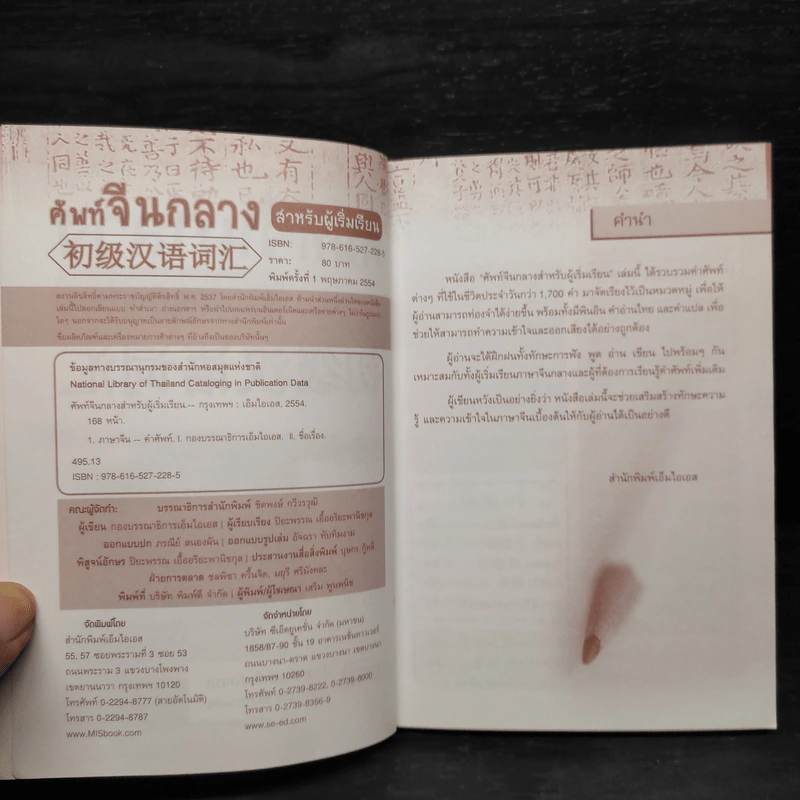 ศัพท์จีนกลาง
สำหรับผู้เริ่มเรียน
初级汉语词汇
ISBN: 978-616-527-228-5
ราคา: 80 บาท
พิมพ์ครั้งที่ 1 พฤษภาคม 2554
สงวนลิขสิทธิ์ตามพระราชบัญญัติลิขสิทธิ์ พ.ศ. 2537 โดยสำนักพิมพ์เอ็มไอเอส ห้ามนำส่วนหนึ่งส่วนใดของหนังสือ
เล่มนี้ไปลอกเลียนแบบ ทำสำเนา ถ่ายเอกสาร หรือนำไปเผยแพร่บนอินเตอร์เน็ตและเครือข่ายต่างๆ ไม่ว่าในรูปแบบ
ใดๆ นอกจากจะได้รับอนุญาตเป็นลายลักษณ์อักษรจากทางสำนักพิมพ์เท่านั้น
ชื่อผลิตภัณฑ์และเครื่องหมายการค้าต่างๆ ที่อ้างถึงเป็นของบริษัทนั้นๆ
ข้อมูลทางบรรณานุกรมของสำนักหอสมุดแห่งชาติ
National Library of Thailand Cataloging in Publication Data
ศัพท์จีนกลางสำหรับผู้เริ่มเรียน.-- กรุงเทพฯ : เอ็มไอเอส, 2554.
168 หน้า.
1. ภาษาจีน -- คำศัพท์. I. กองบรรณาธิการเอ็มไอเอส. II. ชื่อเรื่อง.
495.13
ISBN : 978-616-527-228-5
คณะผู้จัดทำ: บรรณาธิการสำนักพิมพ์ ชิตพงษ์ กวีวรวุฒิ
ผู้เขียน กองบรรณาธิการเอ็มไอเอส | ผู้เรียบเรียง ปิยะพรรณ เอื้ออริยะพานิชกุล
ออกแบบปก ภรณีย์ สนองผัน | ออกแบบรูปเล่ม อัจฉรา ทับทิมงาม
พิสูจน์อักษร ปิยะพรรณ เอื้ออริยะพานิชกุล | ประสานงานสื่อสิ่งพิมพ์ บุษกร กู้หลี
ฝ่ายการตลาด ชลพิชา ครื้นจิต, มยุรี ศรีมังคละ
พิมพ์ที่ บริษัท พิมพ์ดี จำกัด | ผู้พิมพ์/ผู้โฆษณา เสริม พูนพนิช
จัดพิมพ์โดย
สำนักพิมพ์เอ็มไอเอส
55, 57 ซอยพระรามที่ 3 ซอย 53
ถนนพระราม 3 แขวงบางโพงพาง
เขตยานนาวา กรุงเทพฯ 10120
โทรศัพท์ 0-2294-8777 (สายอัตโนมัติ)
โทรสาร 0-2294-8787
www.MISbook.com
จัดจำหน่ายโดย
บริษัท ซีเอ็ดยูเคชั่น จำกัด (มหาชน)
1858/87-90 ชั้น 19 อาคารเนชั่นทาวเวอร์
ถนนบางนา-ตราด แขวงบางนา เขตบางนา
กรุงเทพฯ 10260
โทรศัพท์ 0-2739-8222, 0-2739-8000
โทรสาร 0-2739-8356-9
www.se-ed.com
คำนำ
หนังสือ “ศัพท์จีนกลางสำหรับผู้เริ่มเรียน” เล่มนี้ ได้รวบรวมคำศัพท์
ต่างๆ ที่ใช้ในชีวิตประจำวันกว่า 1,700 คำ มาจัดเรียงไว้เป็นหมวดหมู่ เพื่อให้
ผู้อ่านสามารถท่องจำได้ง่ายขึ้น พร้อมทั้งมีพินอิน คำอ่านไทย และคำแปล เพื่อ
ช่วยให้สามารถทำความเข้าใจและออกเสียงได้อย่างถูกต้อง
ผู้อ่านจะได้ฝึกฝนทั้งทักษะการฟัง พูด อ่าน เขียน ไปพร้อมๆ กัน
เหมาะสมกับทั้งผู้เริ่มเรียนภาษาจีนกลางและผู้ที่ต้องการเรียนรู้คำศัพท์เพิ่มเติม
ผู้เขียนหวังเป็นอย่างยิ่งว่า หนังสือเล่มนี้จะช่วยเสริมสร้างทักษะความ
รู้ และความเข้าใจในภาษาจีนเบื้องต้นให้กับผู้อ่านได้เป็นอย่างดี
สำนักพิมพ์เอ็มไอเอส